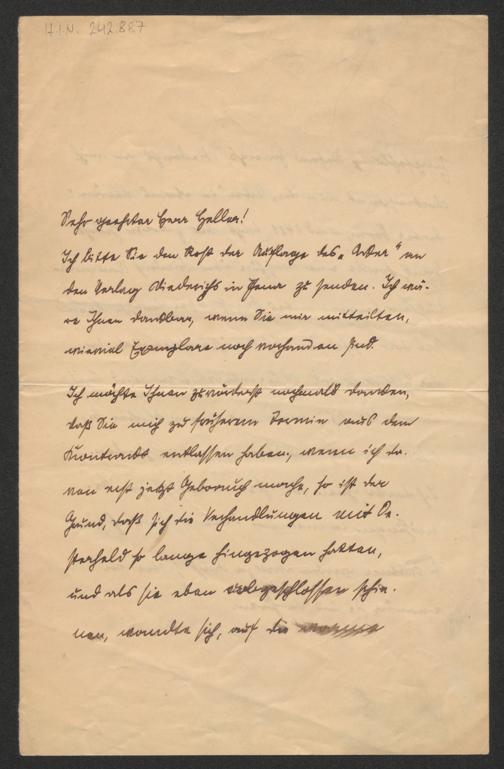 H.I.N. 242.887
Sehr geehrter Herr Heller!
Ich bitte Sie den Rest der Auflage des „Anker" an
den Verlag Diederichs in Jena zu senden. Ich wä-
re Ihnen dankbar, wenn Sie mir mitteilten,
wieviel Exemplare noch vorhanden sind.
Ich möchte Ihnen zuvörderst nochmals danken,
daß Sie mich zu früherem Termin aus dem
Kontrakt entlassen haben, wenn ich da-
von erst jetzt Gebrauch mache, so ist der
Grund, daß sich die Verhandlungen mit Oe-
sterheld so lange hingezogen hatten,
und als sie eben abgeschlossen schie-
nen, wandte sich, auf die